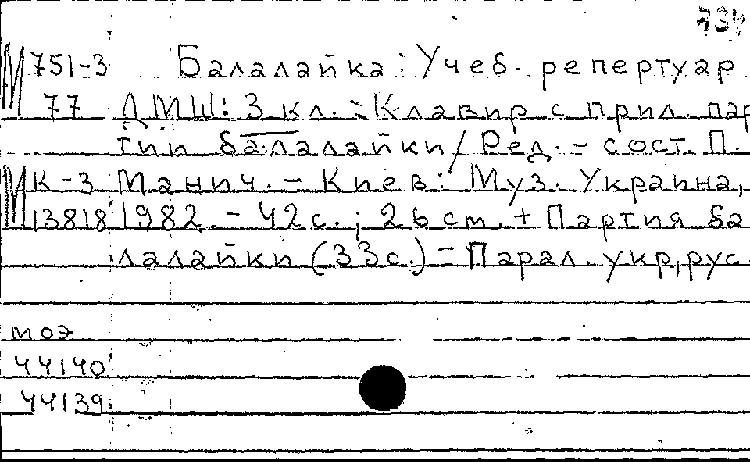 734
М 751-3 Балалайка: Учеб. репертуар
77 ДМШ: 3 кл.: Клавир с прил. пар
тии балалайки / Ред.- сост. П.
М К-3 Манич. - Киев: Муз. Украина,
13818 1982. - 42с.; 26 см. + Партия ба
лалайки (33с.) - Парал. укр, рус
моэ
44140
44139